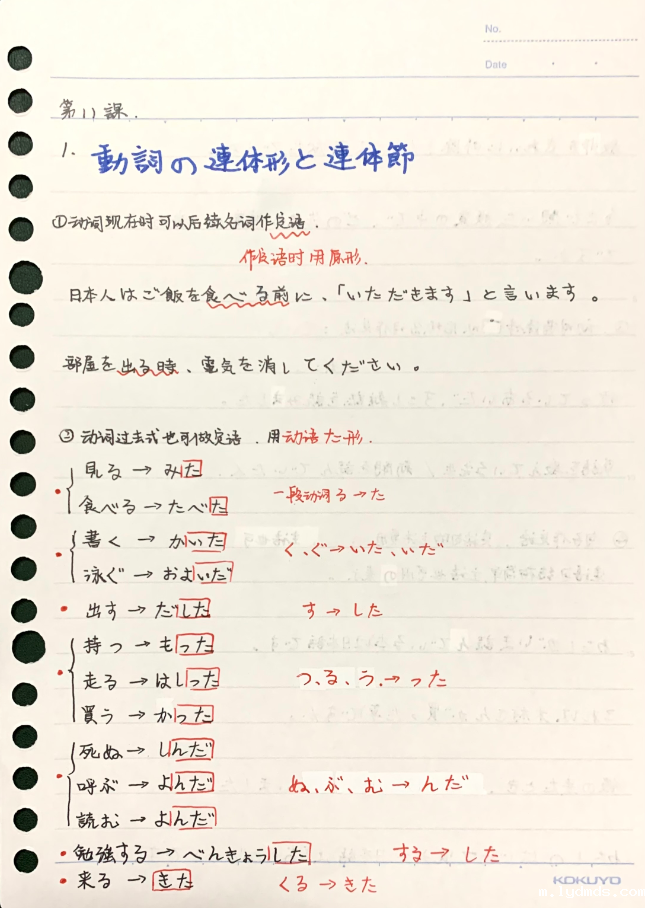 No.
Date
第11課.
1. 動詞の連体形と連体節
①动词现在时可以后续名词作定语.
作定语时用原形.
日本人はご飯を食べる前に、「いただきます」と言います。
部屋を出る時、電気を消してください。
②动词过去式也可做定语.用动语た形.
見る→みた
食べる→たべた
一段动词る→た
書く→かいた
泳ぐ→およいだ
く、ぐ→いた、いだ
出す→だした
す→した
持つ→もった
走る→はしった
買う→かった
つ、る、う→った
死ぬ→しんだ
呼ぶ→よんだ
読む→よんだ
ぬ、ぶ、む→んだ
勉強する→べんきょうした
する→した
来る→きた
くる→きた
KOKUYO